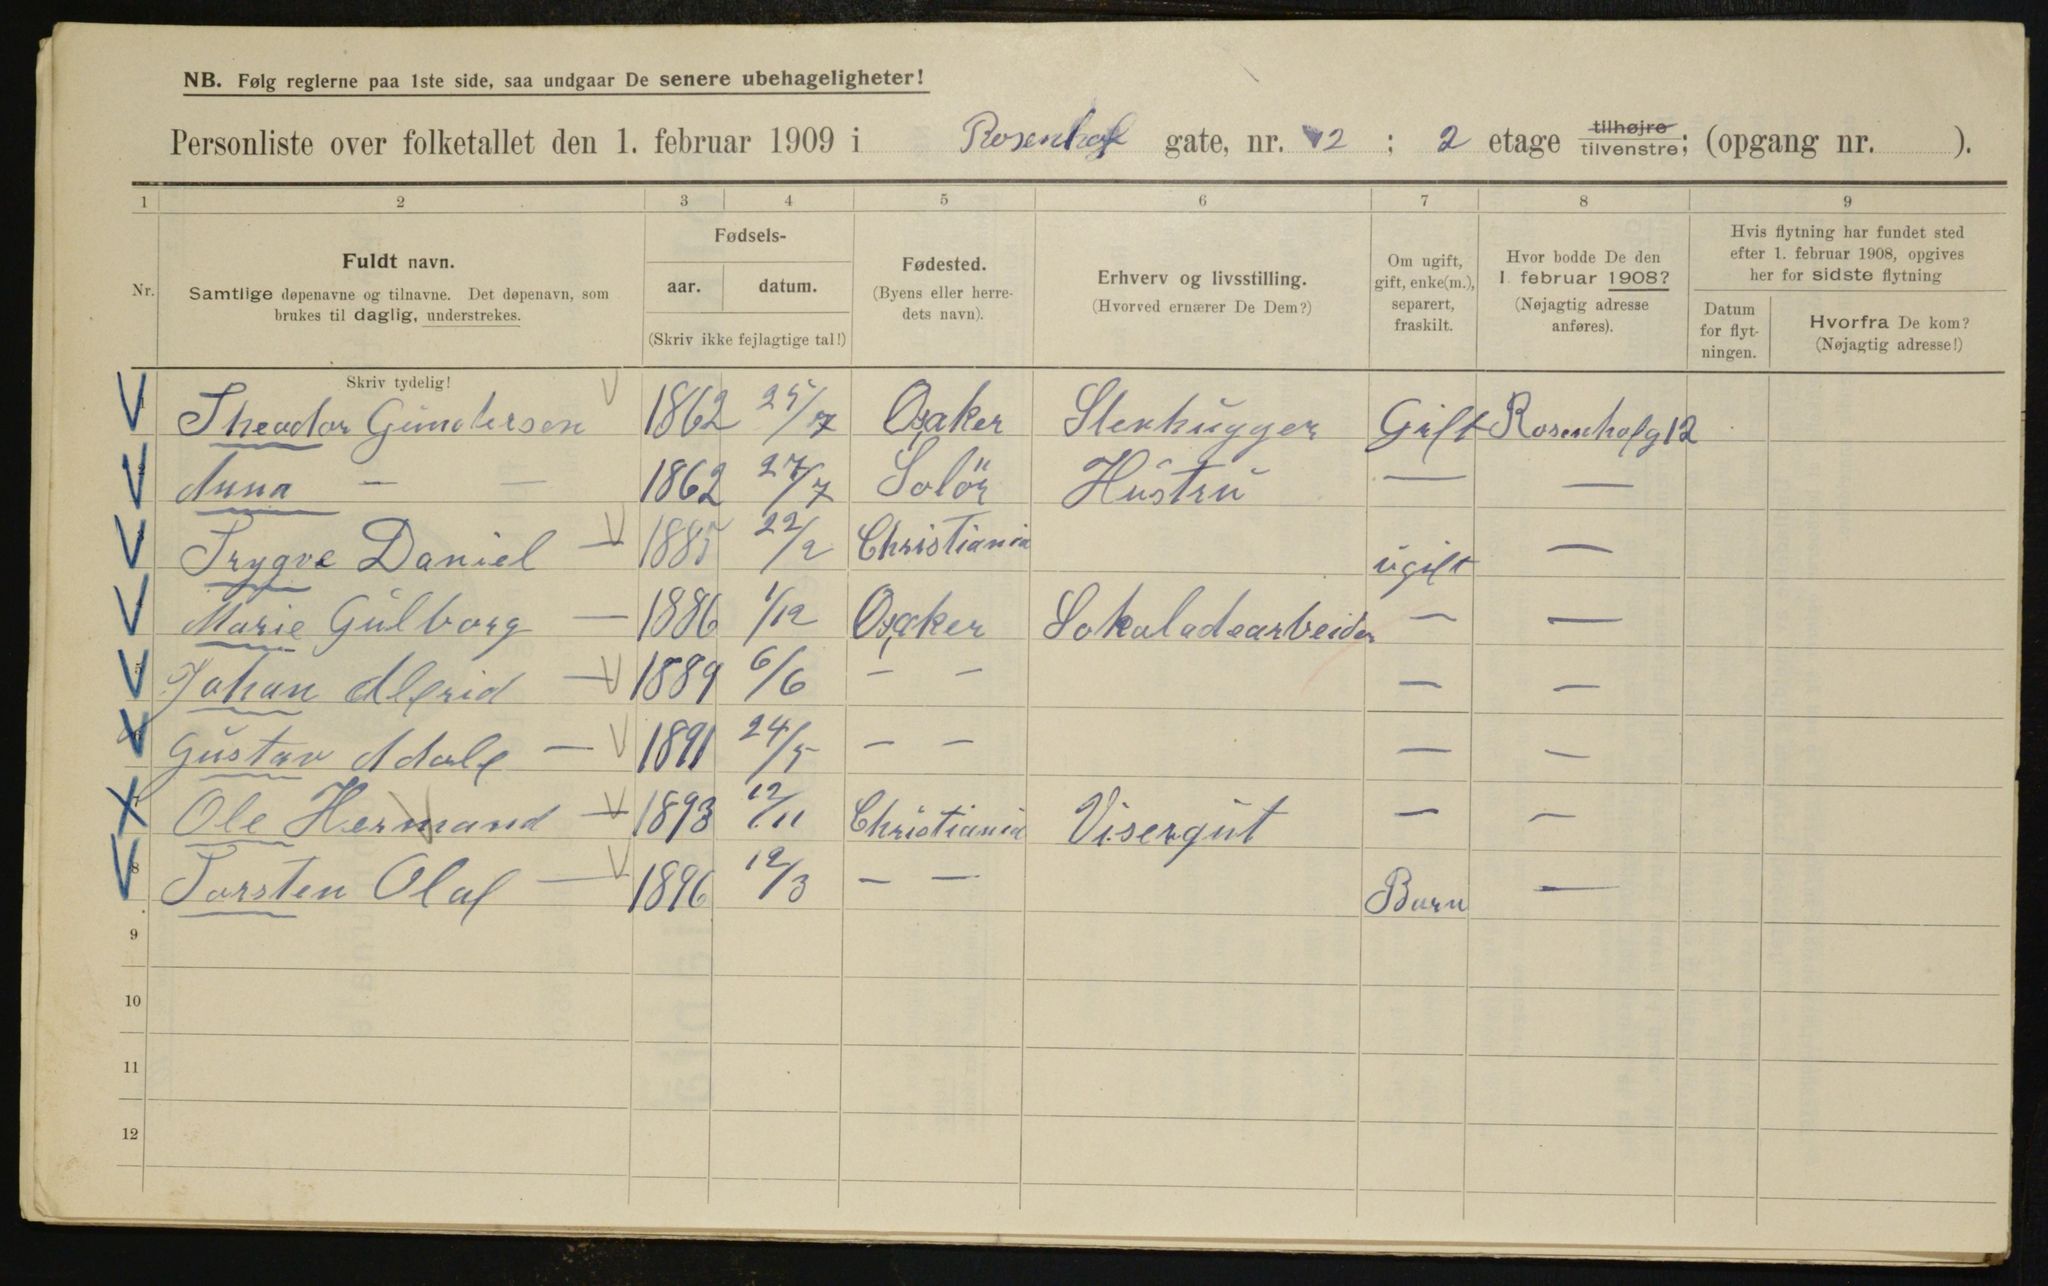 NB. Følg reglerne paa 1ste side, saa undgaar De senere ubehageligheter!
Personliste over folketallet den 1. februar 1909 i Rosenhof gate, nr. 12 ; 2 etage tilhøjre tilvenstre; (opgang nr. ).
1 2 3 4 5 6 7 8 9
Nr.
Fuldt navn.
Samtlige døpenavne og tilnavne. Det døpenavn, som
brukes til daglig, understrekes.
Skriv tydelig!
Fødsels-
aar. datum.
(Skriv ikke fejlagtige tal!)
Fødested.
(Byens eller herre-
dets navn).
Erhverv og livsstilling.
(Hvorved ernærer De Dem?)
Om ugift,
gift, enke(m.),
separert,
fraskilt.
Hvor bodde De den
1. februar 1908?
(Nøjagtig adresse
anføres).
Hvis flytning har fundet sted
efter 1. februar 1908, opgives
her for sidste flytning
Datum
for flyt-
ningen.
Hvorfra De kom?
(Nøjagtig adresse!)
1 Theodor Gundersen 1862 25/7 Osaker Stenhugger Gift Rosenhofg 12
2 Anna — — 1862 27/7 Solör Hustru — —
3 Trygve Daniel — 1885 22/2 Christiania ugift —
4 Marie Gulborg — 1886 1/12 Osaker Sokoladearbeider — —
5 Johan — 1889 6/6 — — — —
6 Gustav — 1891 24/5 — — — —
7 Ole Hermand — 1893 12/11 Christiania Visergut — —
8 Torsten Olaf — 1896 12/3 — — Barn —
9
10
11
12